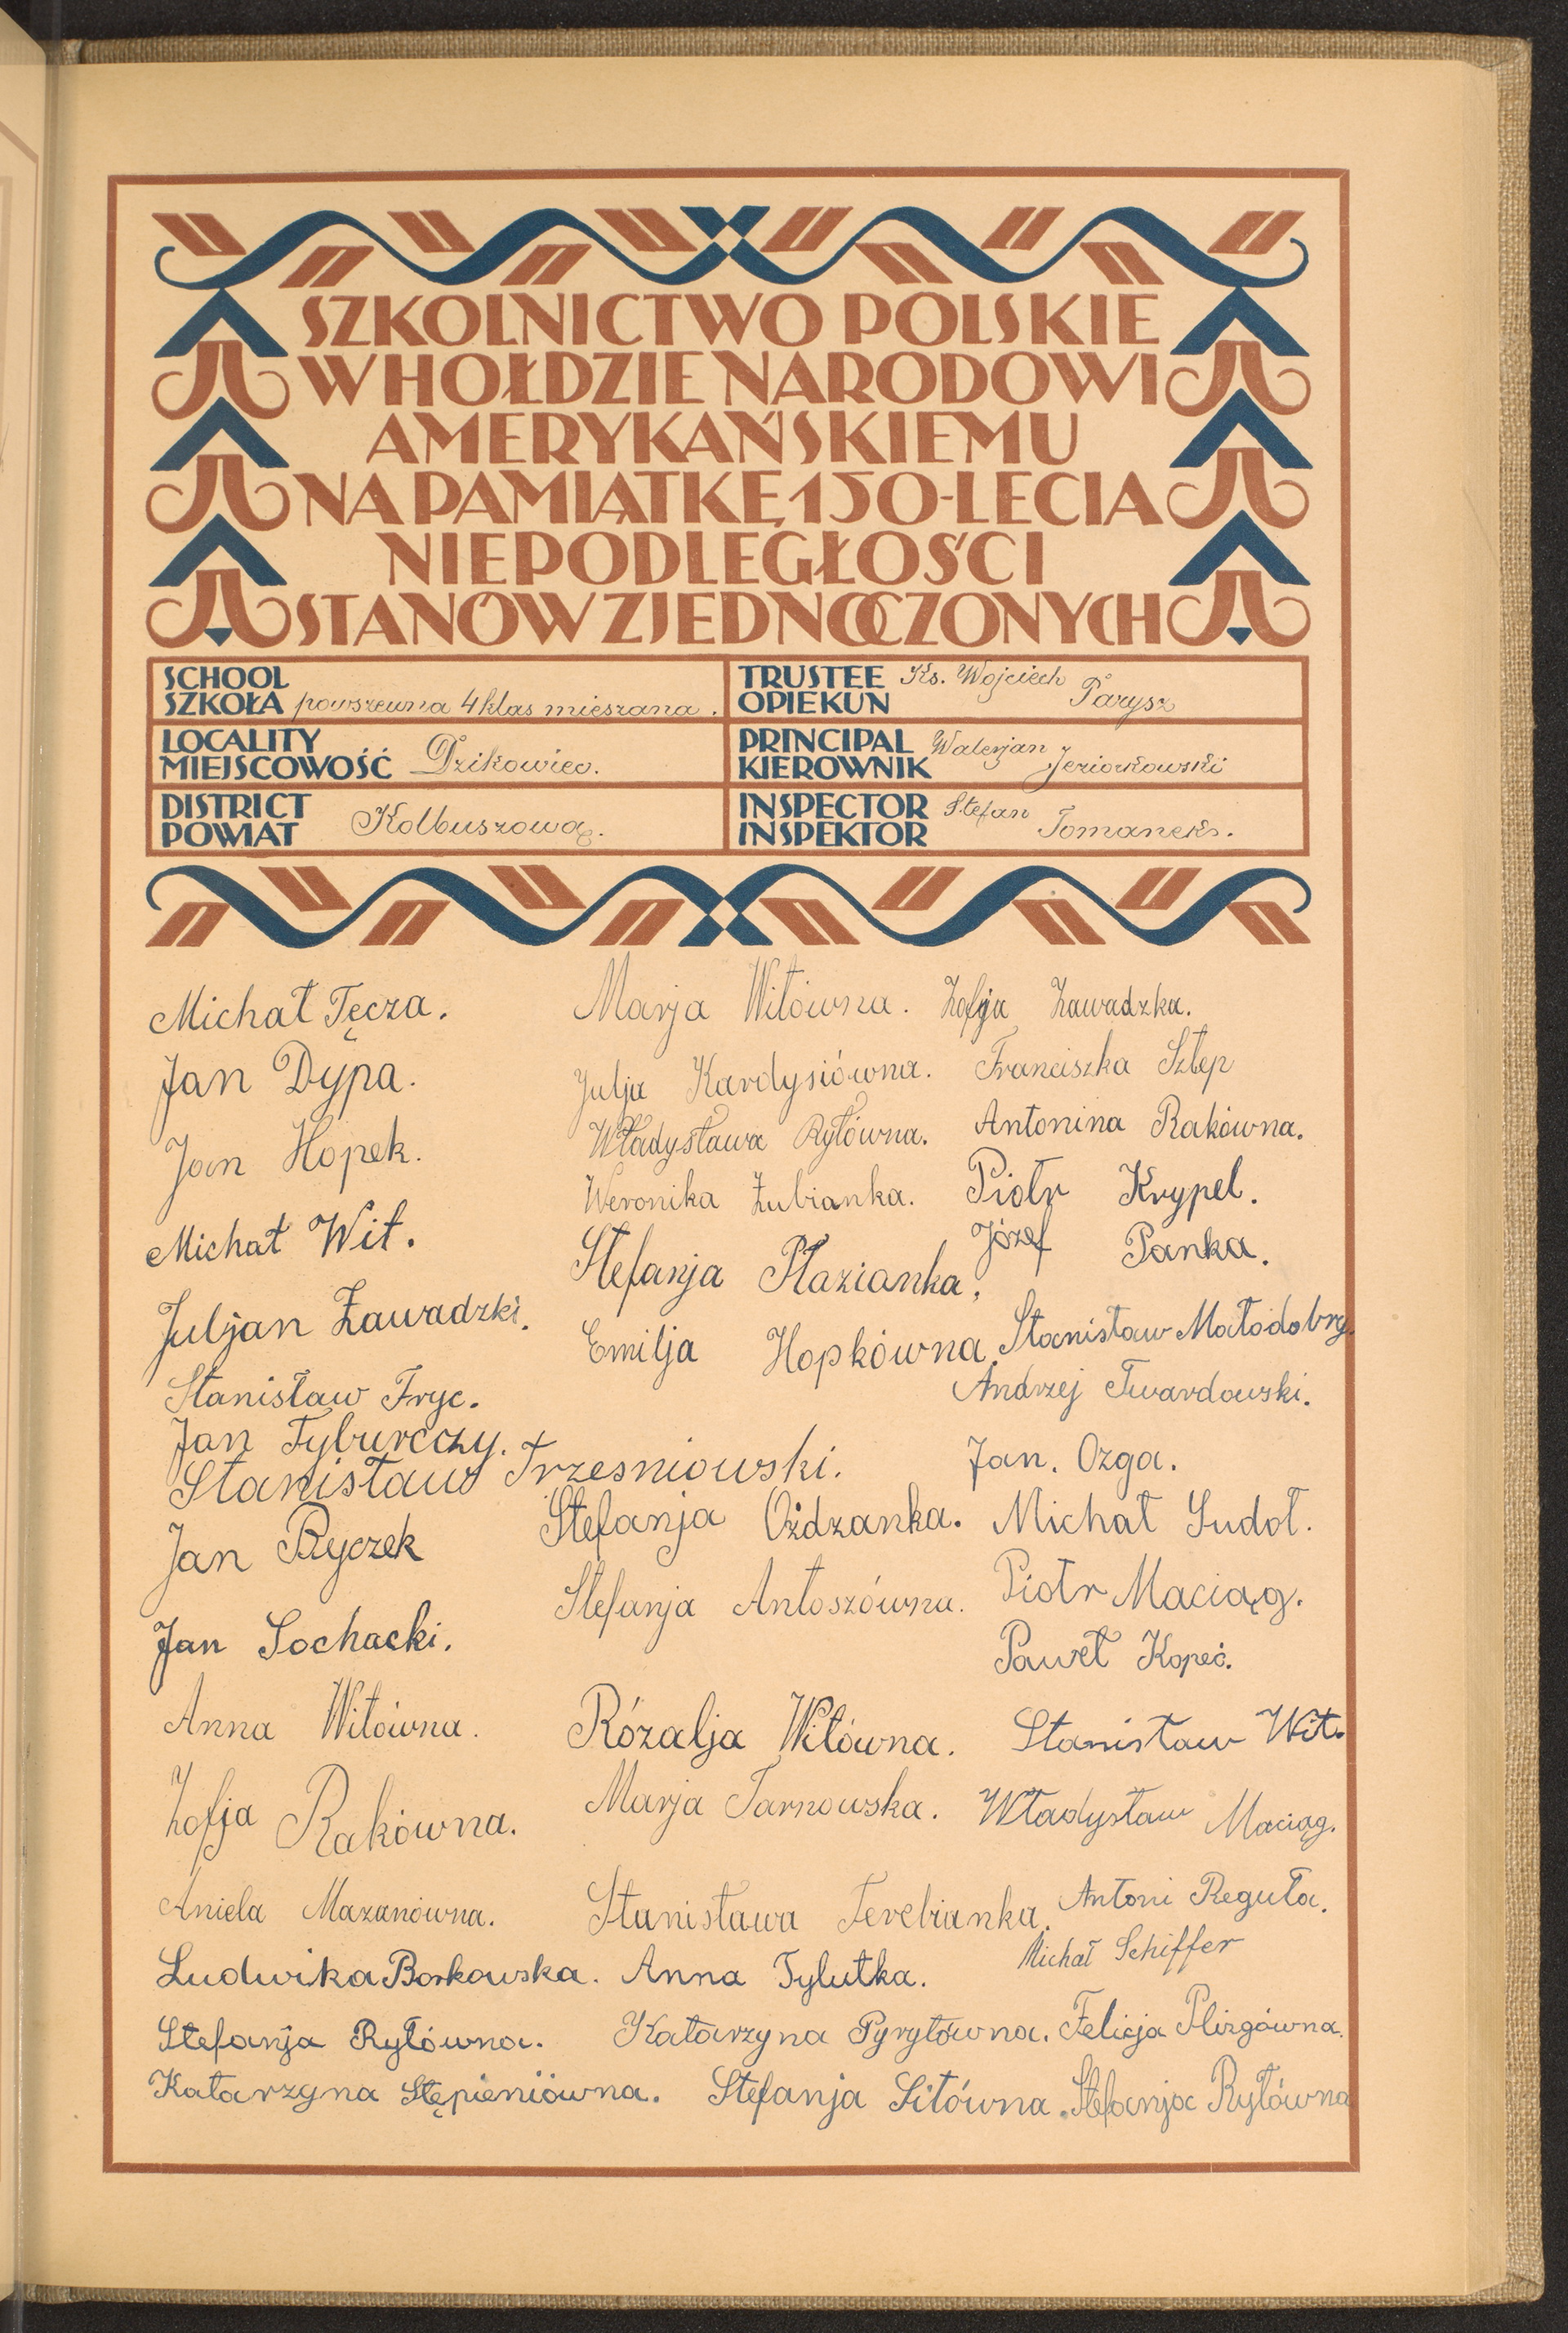 SZKOLNICTWO POLSKIE
W HOŁDZIE NARODOWI
AMERYKAŃSKIEMU
NA PAMIĄTKĘ 150-LECIA
NIEPODLEGŁOŚCI
STANÓW ZJEDNOCZONYCH
SCHOOL
SZKOŁA powszewna 4 klas mieszana.
TRUSTEE Ks. Wojciech
OPIEKUN Parysz
LOCALITY
MIEJSCOWOŚĆ Dzikowiec.
PRINCIPAL Walerjan
KIEROWNIK Jeziorkowski
DISTRICT
POWIAT Kolbuszowa.
INSPECTOR Stefan
INSPEKTOR Tomanek.
Michał Tęcza.
Jan Dypa.
Jan Hopek.
Michał Wit.
Juljan Zawadzki.
Stanisław Fryc.
Jan Tyburczy.
Stanisław Trzesniowski.
Jan Ryczek
Jan Sochacki.
Anna Witówna.
Zofja Rakówna.
Aniela Mazanówna.
Ludwika Borkowska.
Stefanja Ryłówna.
Katarzyna Stępieniówna.
Marja Witówna.
Julja Kardysiówna.
Władysława Ryłówna.
Weronika Zubianka.
Stefanja Płazianka.
Emilja Hopkówna.
Stefanja Ożdzanka.
Stefanja Antoszówna.
Rózalja Witówna.
Marja Tarnowska.
Stanisława Terebianka.
Anna Tylutka.
Katarzyna Pyryłówna.
Stefanja Sitówna.
Zofja Zawadzka.
Franciszka Szlep
Antonina Rakówna.
Piotr Krypel.
Józef Panka.
Stanisław Małodobry.
Andrzej Twardowski.
Jan. Ozga.
Michał Sudoł.
Piotr Maciąg.
Paweł Kopeć.
Stanisław Wit.
Władysław Maciąg.
Antoni Reguła.
Michał Schiffer
Felicja Plizgówna.
Stefanja Ryłówna